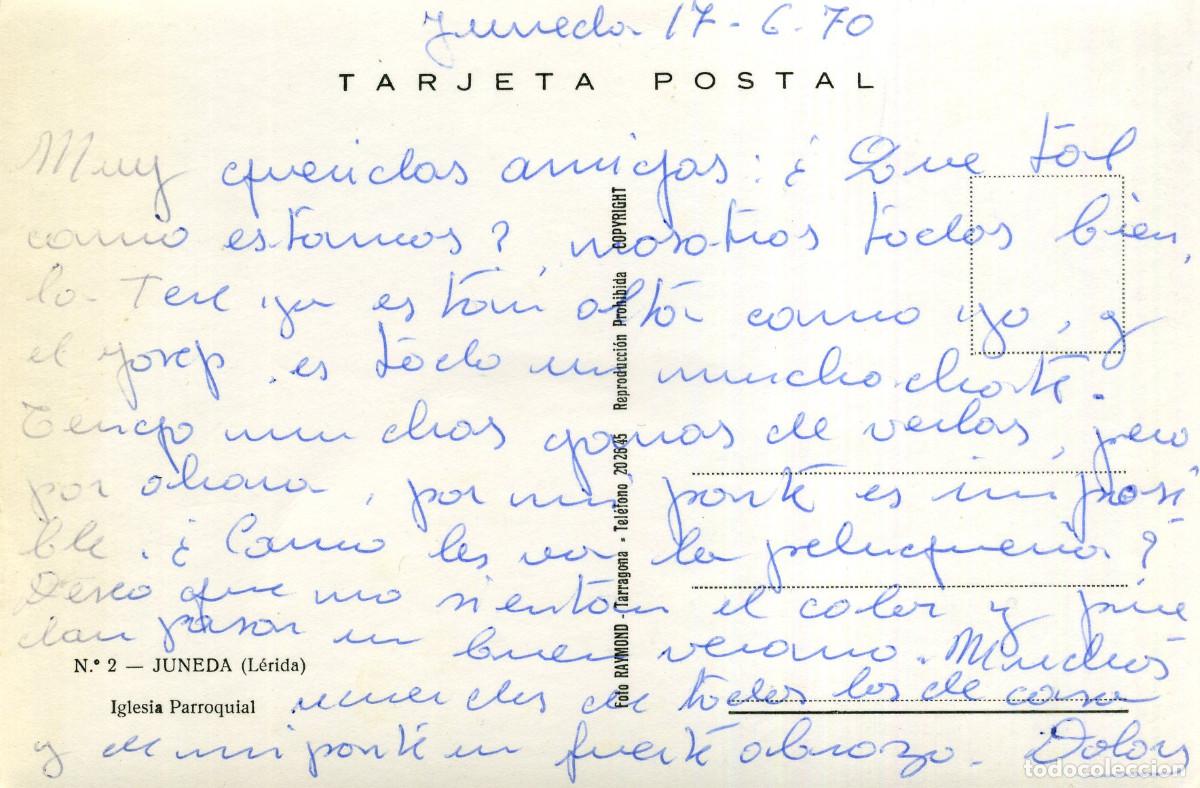 Juneda 17-6-70
TARJETA POSTAL
Muy queridas amigas: ¿Que tal
como estamos?, nosotros todos bien,
la Tere ya es tan alta como yo, y
el Josep, es todo un muchachote.
Tengo muchas ganas de verlas, pero
por ahora, por mi parte es imposi
ble. ¿Como les va la peluqueria?
Deseo que no sientan el calor y pue
dan pasar un buen verano. Muchos
N.º 2 — JUNEDA (Lérida)
Iglesia Parroquial
de todos los de casa
y de mi parte un fuerte abrazo. Dolors
Foto RAYMOND - Tarragona - Teléfono 202845 Reproducción Prohibida COPYRIGHT
todocoleccion